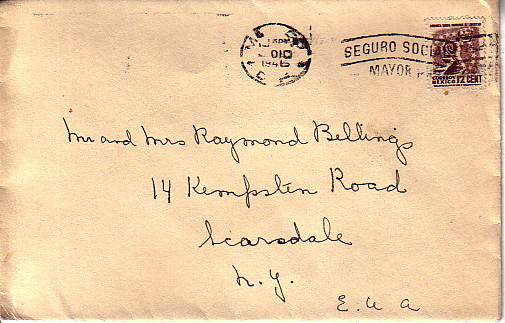 DIC
1946
SEGURO SOCIAL
MAYOR
CORREOS
MEXICO 12 CENT
Mr and Mrs Raymond Bellings
14 Kempsten Road
Scarsdale
N. Y.
E. U. A